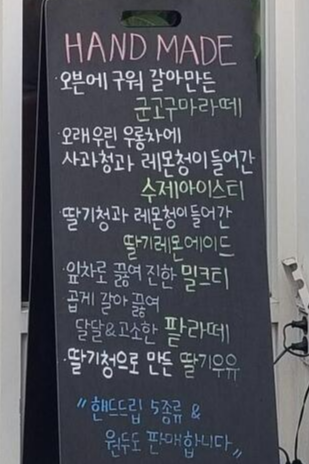 HAND MADE
·오븐에 구워 갈아만든
군고구마라떼
·오래우린 우롱차에
사과청과 레몬청이 들어간
수제아이스티
딸기청과 레몬청이 들어간
딸기레몬에이드
·잎차로 끓여 진한 밀크티
곱게 갈아 끓여
달달&고소한 팥라떼
·딸기청으로 만든 딸기우유
"핸드드립 5종류 &
원두도 판매합니다"